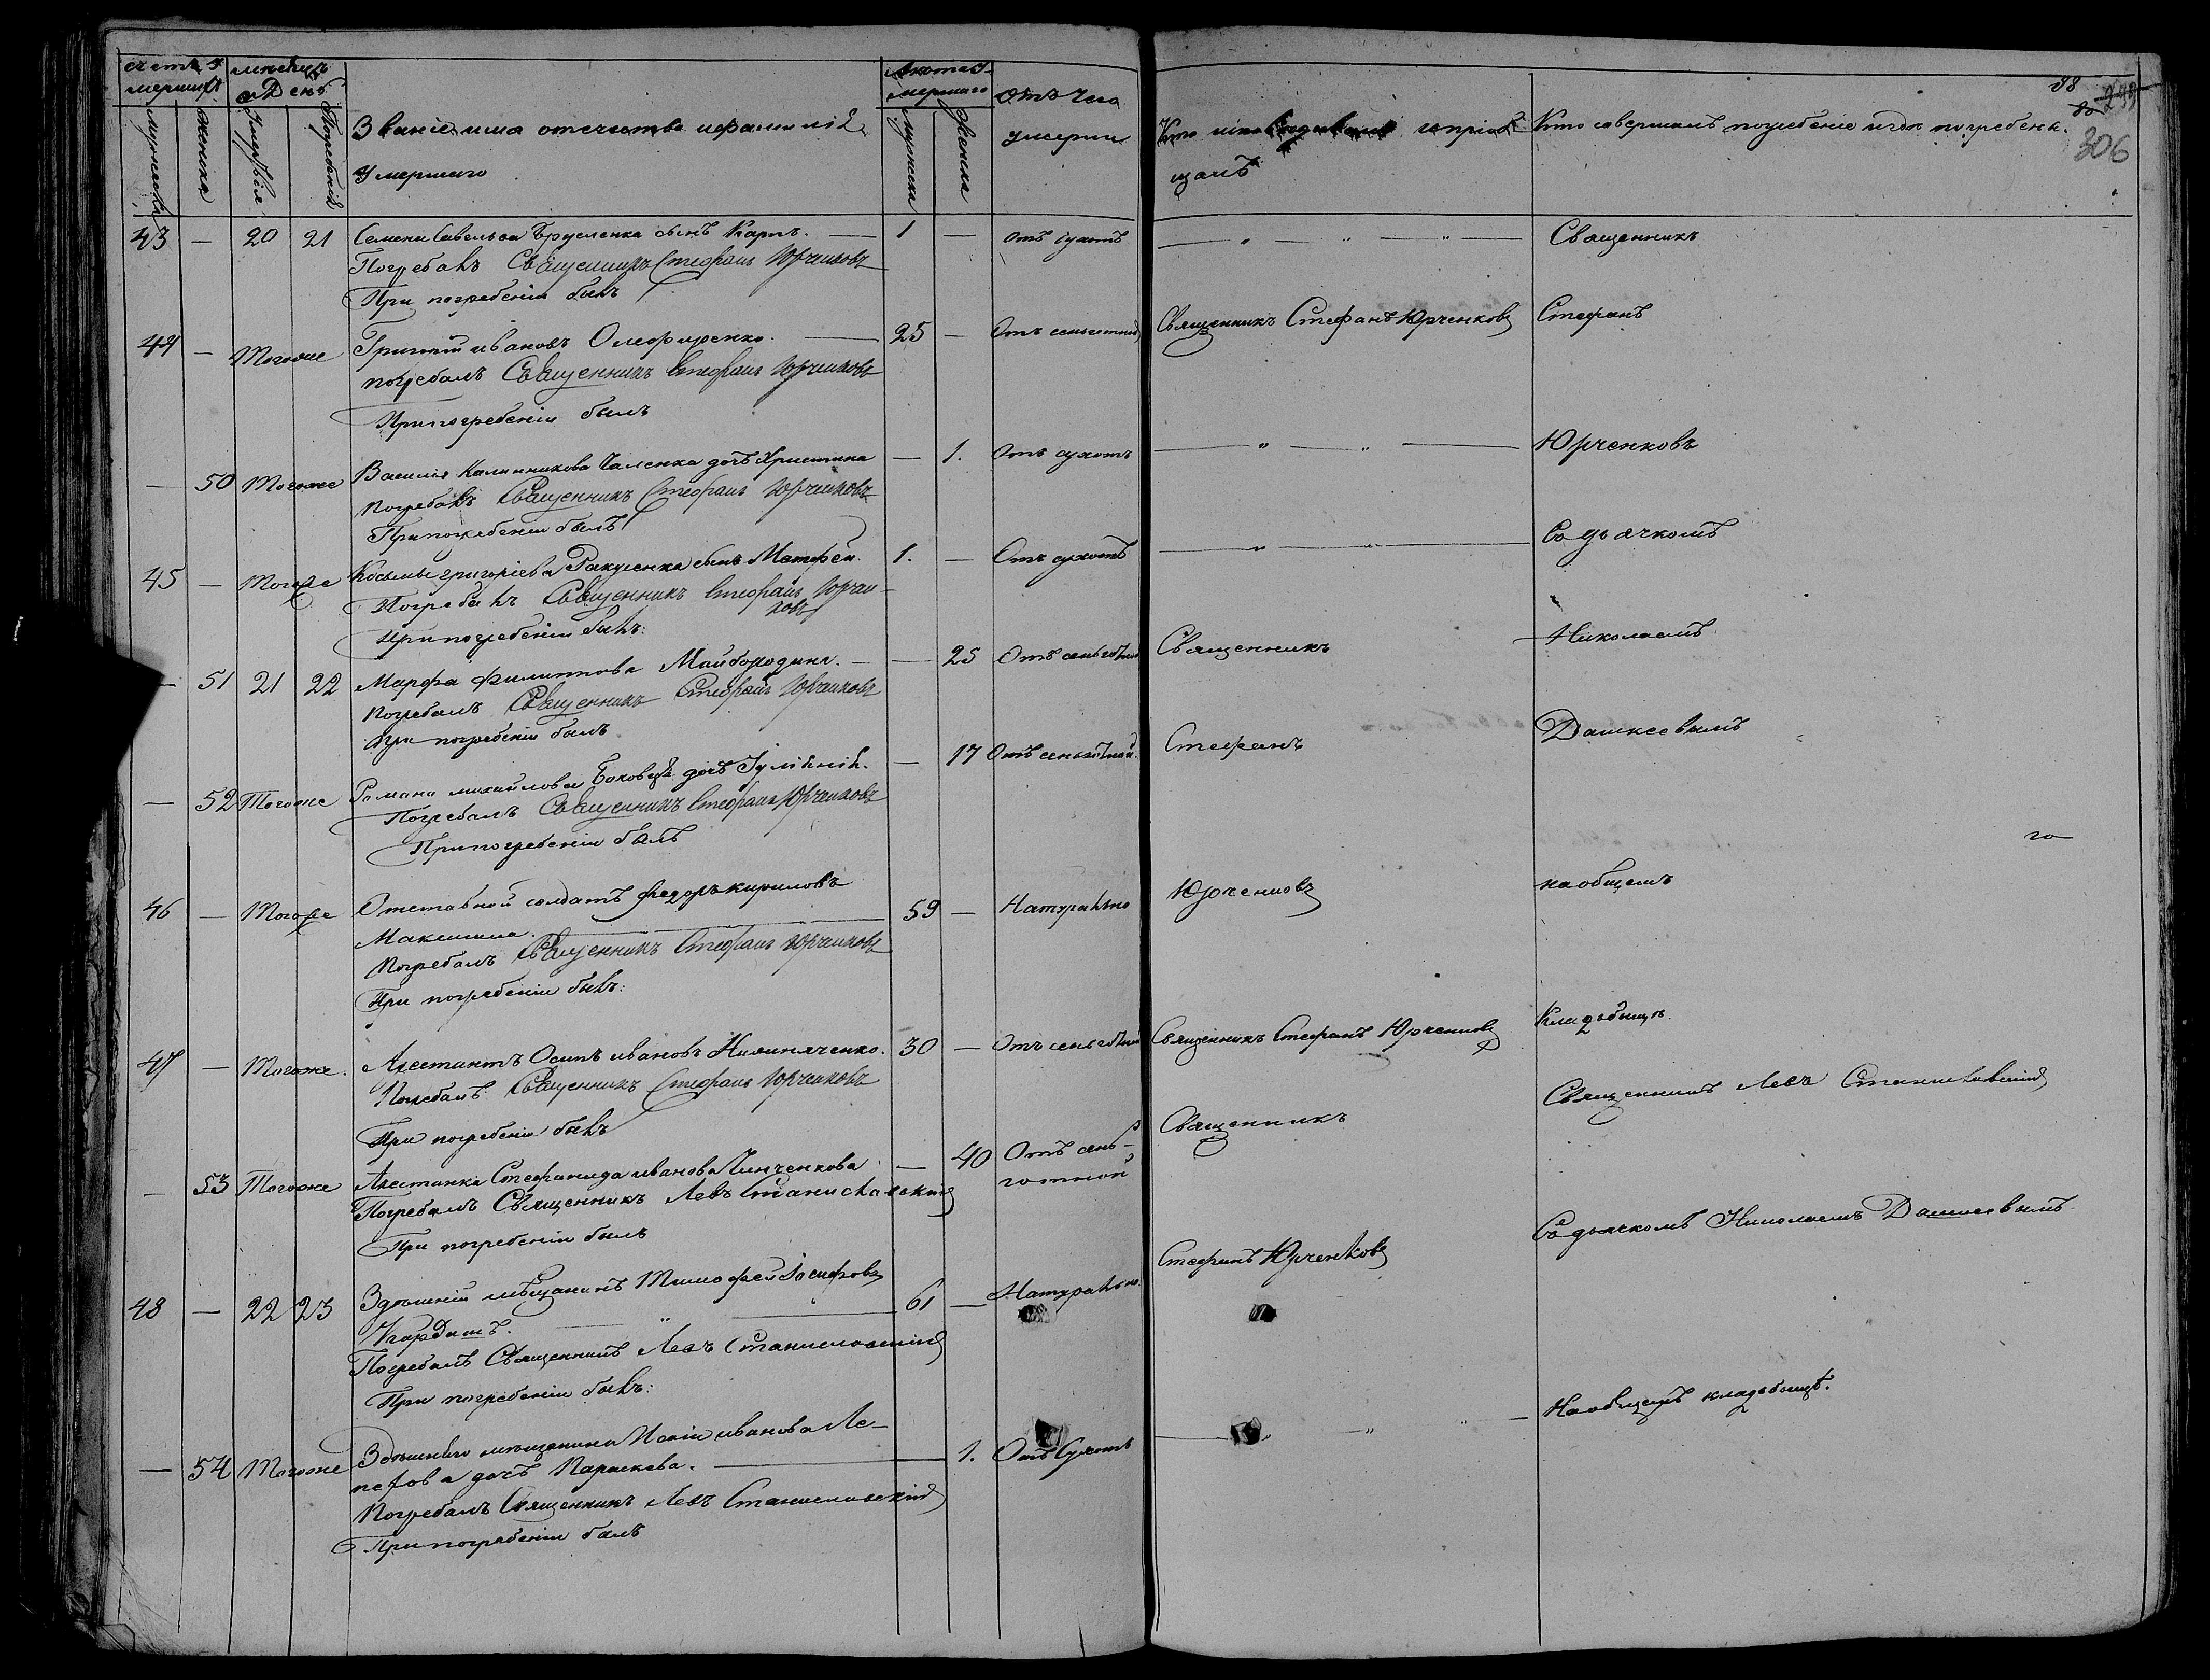 Счетъ у-
мершихъ
мужеска
женска
мѣсяцъ
и День
Умертвія
Погребенія
Званіе имя отечество и фамилія
Умершаго
Лѣта у-
мершаго
Мужеска
Женска
Отъ чего
умерли
Кто исповѣдывалъ и пріоб-
щалъ
Кто совершалъ погребеніе и гдѣ погребены.
88
306
43 — 20 21 Семена Савельева сынъ Карпъ. — 1 — отъ сухотъ
Священникъ
Погребалъ Священникъ Стефанъ Юрченковъ
При погребеніи былъ
44 — Тогоже Григорій Ивановъ Олефиренко. — 25 — Отъ сеньготной
Священникъ Стефанъ Юрченковъ
Стефанъ
погребалъ Священникъ Стефанъ Юрченковъ
При погребеніи былъ
— 50 Тогоже Василія Калинникова Чаленка дочь Христина — 1. Отъ сухотъ
Юрченковъ
Погребалъ Священникъ Стефанъ Юрченковъ
При погребеніи былъ
45 — Тогоже Косьмы Григоріева сынъ Матфей. 1. — Отъ сухотъ
Со дьячкомъ
Погребалъ Священникъ Стефанъ Юрчен-
ковъ
При погребеніи былъ:
— 51 21 22 Марфа Филиппова Майбородина. — — 25 Отъ сеньготной
Священникъ
Николаемъ
Погребалъ Священникъ Стефанъ Юрченковъ
При погребеніи былъ
— 52 Тогоже Романа Михайлова дочь — 17 Отъ сеньготной.
Стефанъ
Дашкевымъ
Погребалъ Священникъ Стефанъ Юрченковъ
При погребеніи былъ
46 — Тогоже Отставной солдатъ Федоръ Кириловъ
59 — Натурально
Юрченковъ
на общемъ
Максима.
Погребалъ Священникъ Стефанъ Юрченковъ
При погребеніи былъ:
47 — Тогоже. Арестантъ Осипъ Ивановъ 30 — Отъ сеньготной
Священникъ Стефанъ Юрченковъ
Кладьбищѣ.
Погребалъ Священникъ Стефанъ Юрченковъ
При погребеніи былъ
Священникъ Левъ Станиславскій
— 53 Тогоже Арестанка Стефанида Иванова — 40 Отъ сень-
готной
Священникъ
Погребалъ Священникъ Левъ Станиславскій
При погребеніи былъ
Со дьячкомъ Николаемъ Дашкевымъ
48 — 22 23 Здѣшній мѣщанинъ Тимофей Іосифовъ
61 — Натурально.
Стефанъ Юрченковъ
Кардашъ.
Погребалъ Священникъ Левъ Станиславскій
При погребеніи былъ:
На общемъ кладьбищѣ.
— 54 Тогоже Здѣшняго мѣщанина Исаіи Иванова Ле-
1. Отъ Сухотъ
дочь Параскева.
Погребалъ Священникъ Левъ Станиславскій
При погребеніи былъ